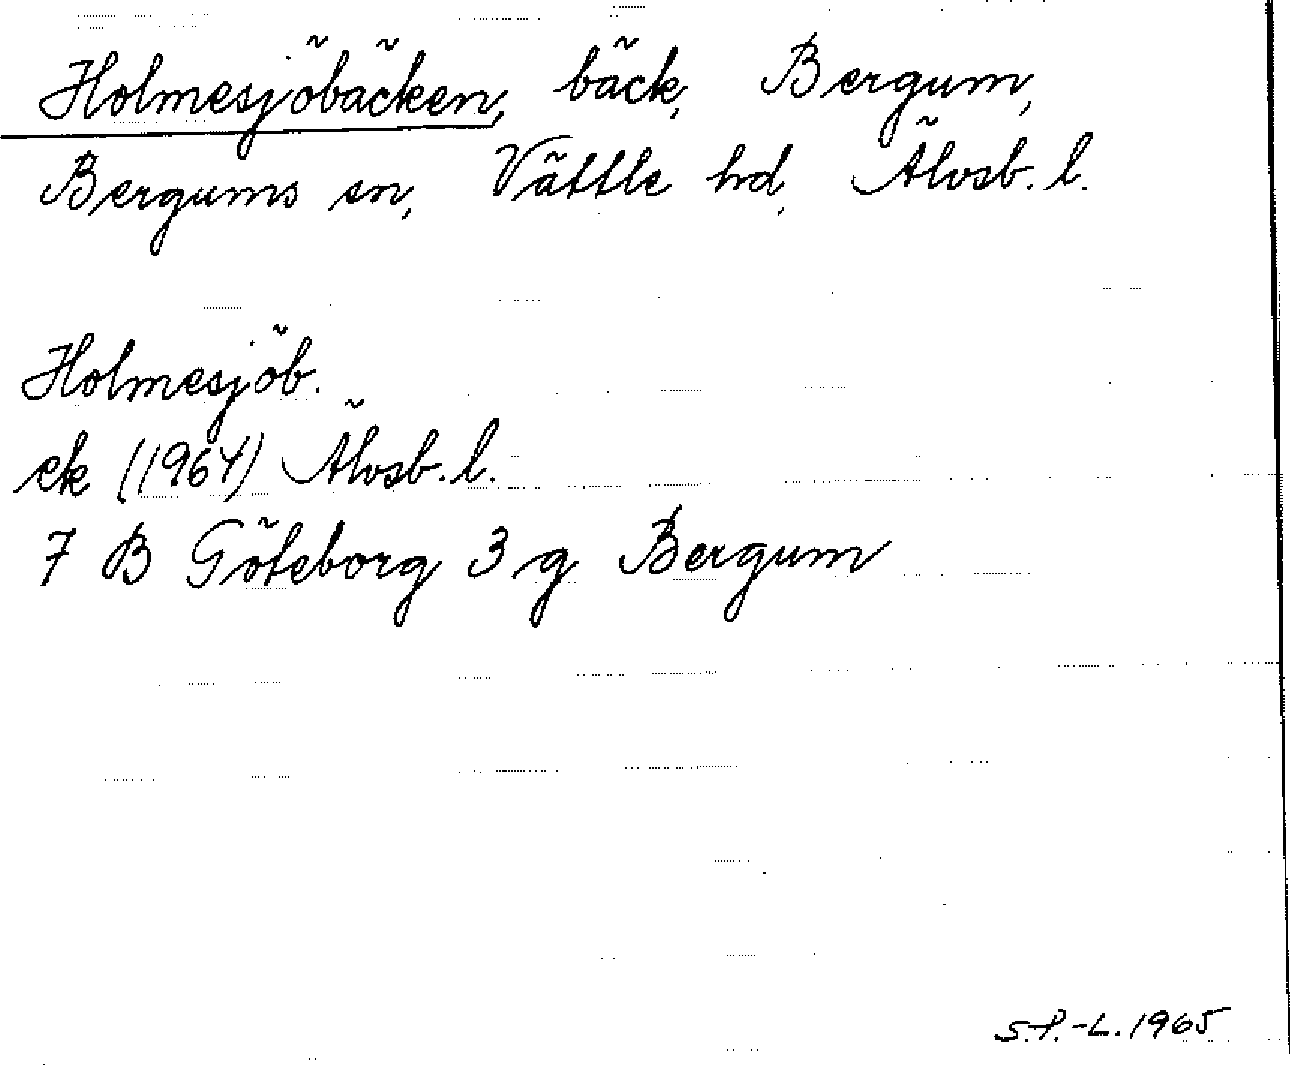 Holmesjöbäcken, bäck, Bergum,
Bergums sn, Vättle hd, Älvsb. l.
Holmesjöb.
ek (1964) Älvsb. l.
7 B Göteborg 3 g Bergum
S.P.-L. 1965